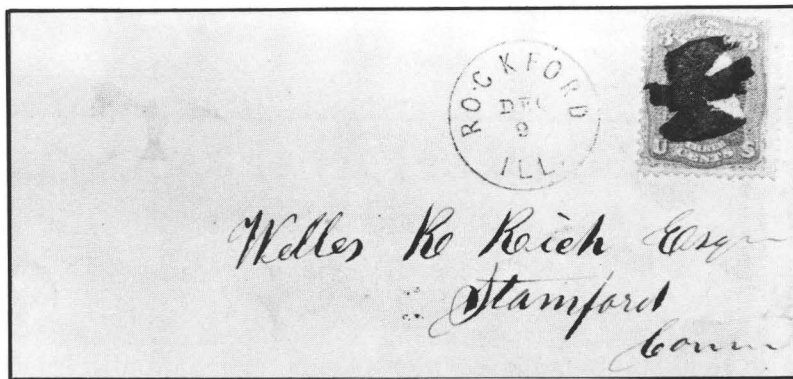 ROCKFORD
DEC
9
ILL.
3 3
U CENTS S
Welles R Rich Esqr
Stamford
Conn